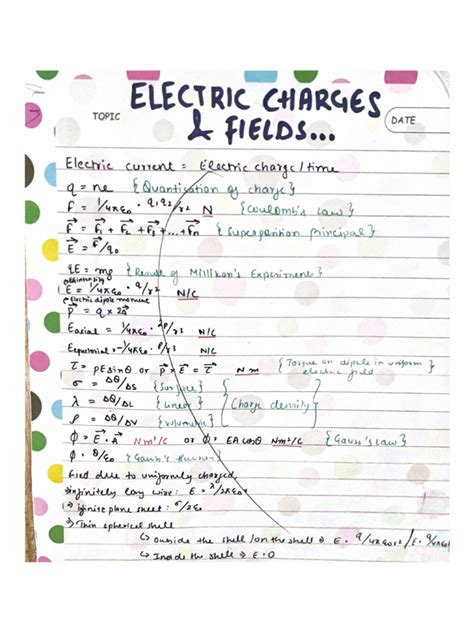 ELECTRIC CHARGES
& FIELDS...
TOPIC
DATE
Electric current = Electric charge/time
q = ne {Quantisation of charge}
F = 1/4πε₀ · q₁q₂/r² N {Coulomb's Law}
F⃗ = F⃗₁ + F⃗₂ + F⃗₃ +...+ F⃗n {Superposition Principal}
E⃗ = F⃗/q₀
qE = mg {Result of Millikan's Experiment}
E = 1/4πε₀ · q/r² N/C
Electric dipole moment
P⃗ = q × 2a⃗
Eaxial = 1/4πε₀ · 2P/r³ N/C
Equatorial = -1/4πε₀ · P/r³ N/C
τ = PE sinθ or P⃗ × E⃗ = τ⃗ N m {Torque on dipole in uniform
electric field}
σ = Δθ/ΔS {Surface}
λ = Δθ/ΔL {Linear} {Charge density}
ρ = Δθ/ΔV {Volumetric}
φ = E⃗ · A⃗ Nm²/C or φ = EA cosθ Nm²/C {Gauss's Law}
φ = θ/ε₀ {Gauss's}
field due to uniformly charged
infinitely long wire: E = λ/2πε₀r
→ Infinite plane sheet: σ/2ε₀
→ Thin spherical shell
↳ Outside the shell/on the shell ⇒ E = q/4πε₀r² / E = q/4πε₀
↳ Inside the shell ⇒ E = 0